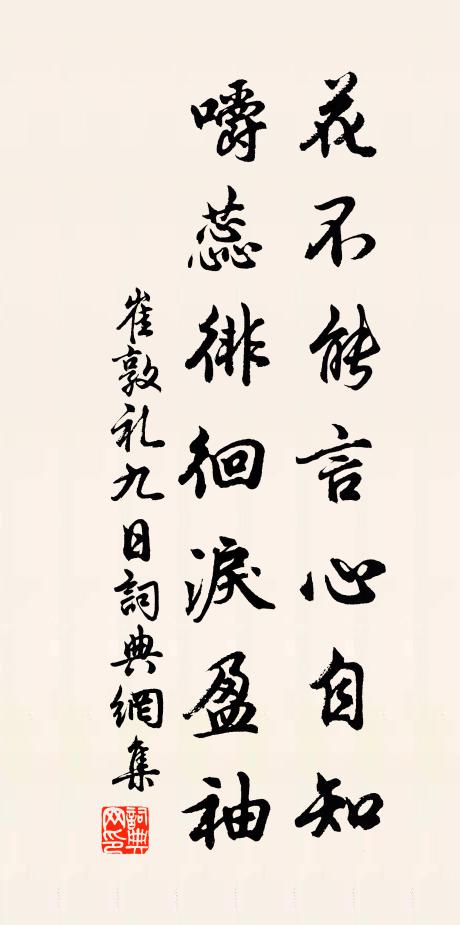 花不能言心自知
嚼蕊徘徊淚盈袖
崔敦礼九日詞典網集
詞典網印